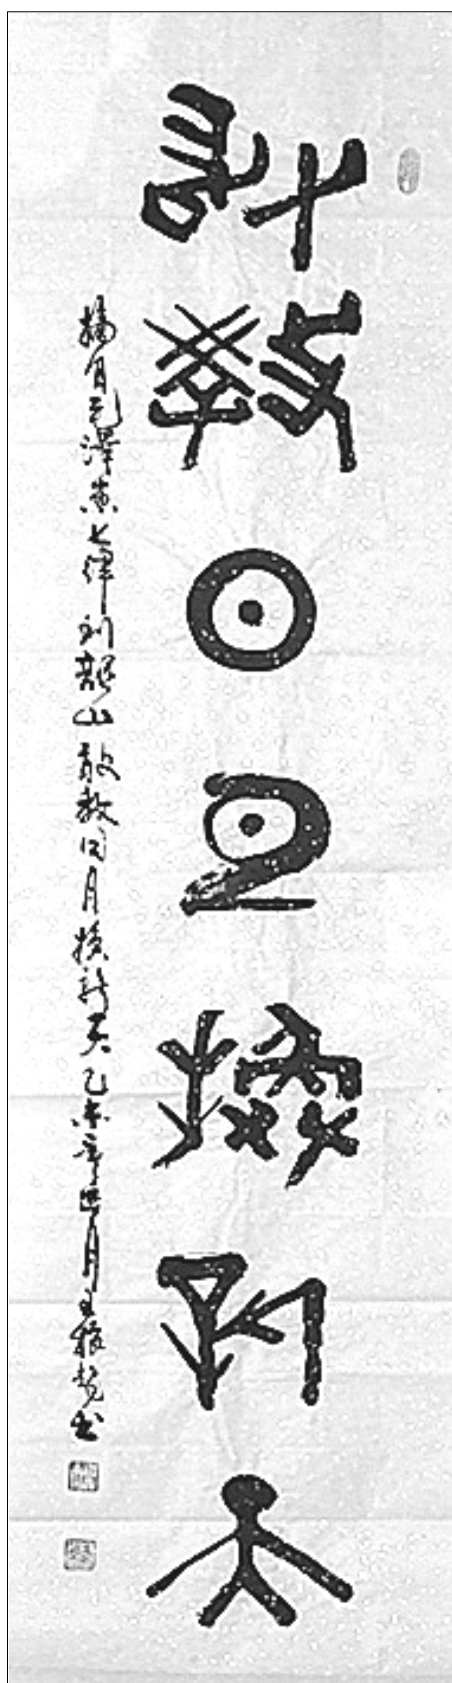 敢教日月换新天
摘自毛泽东七律到韶山敢教日月换新天乙未年 月王 书